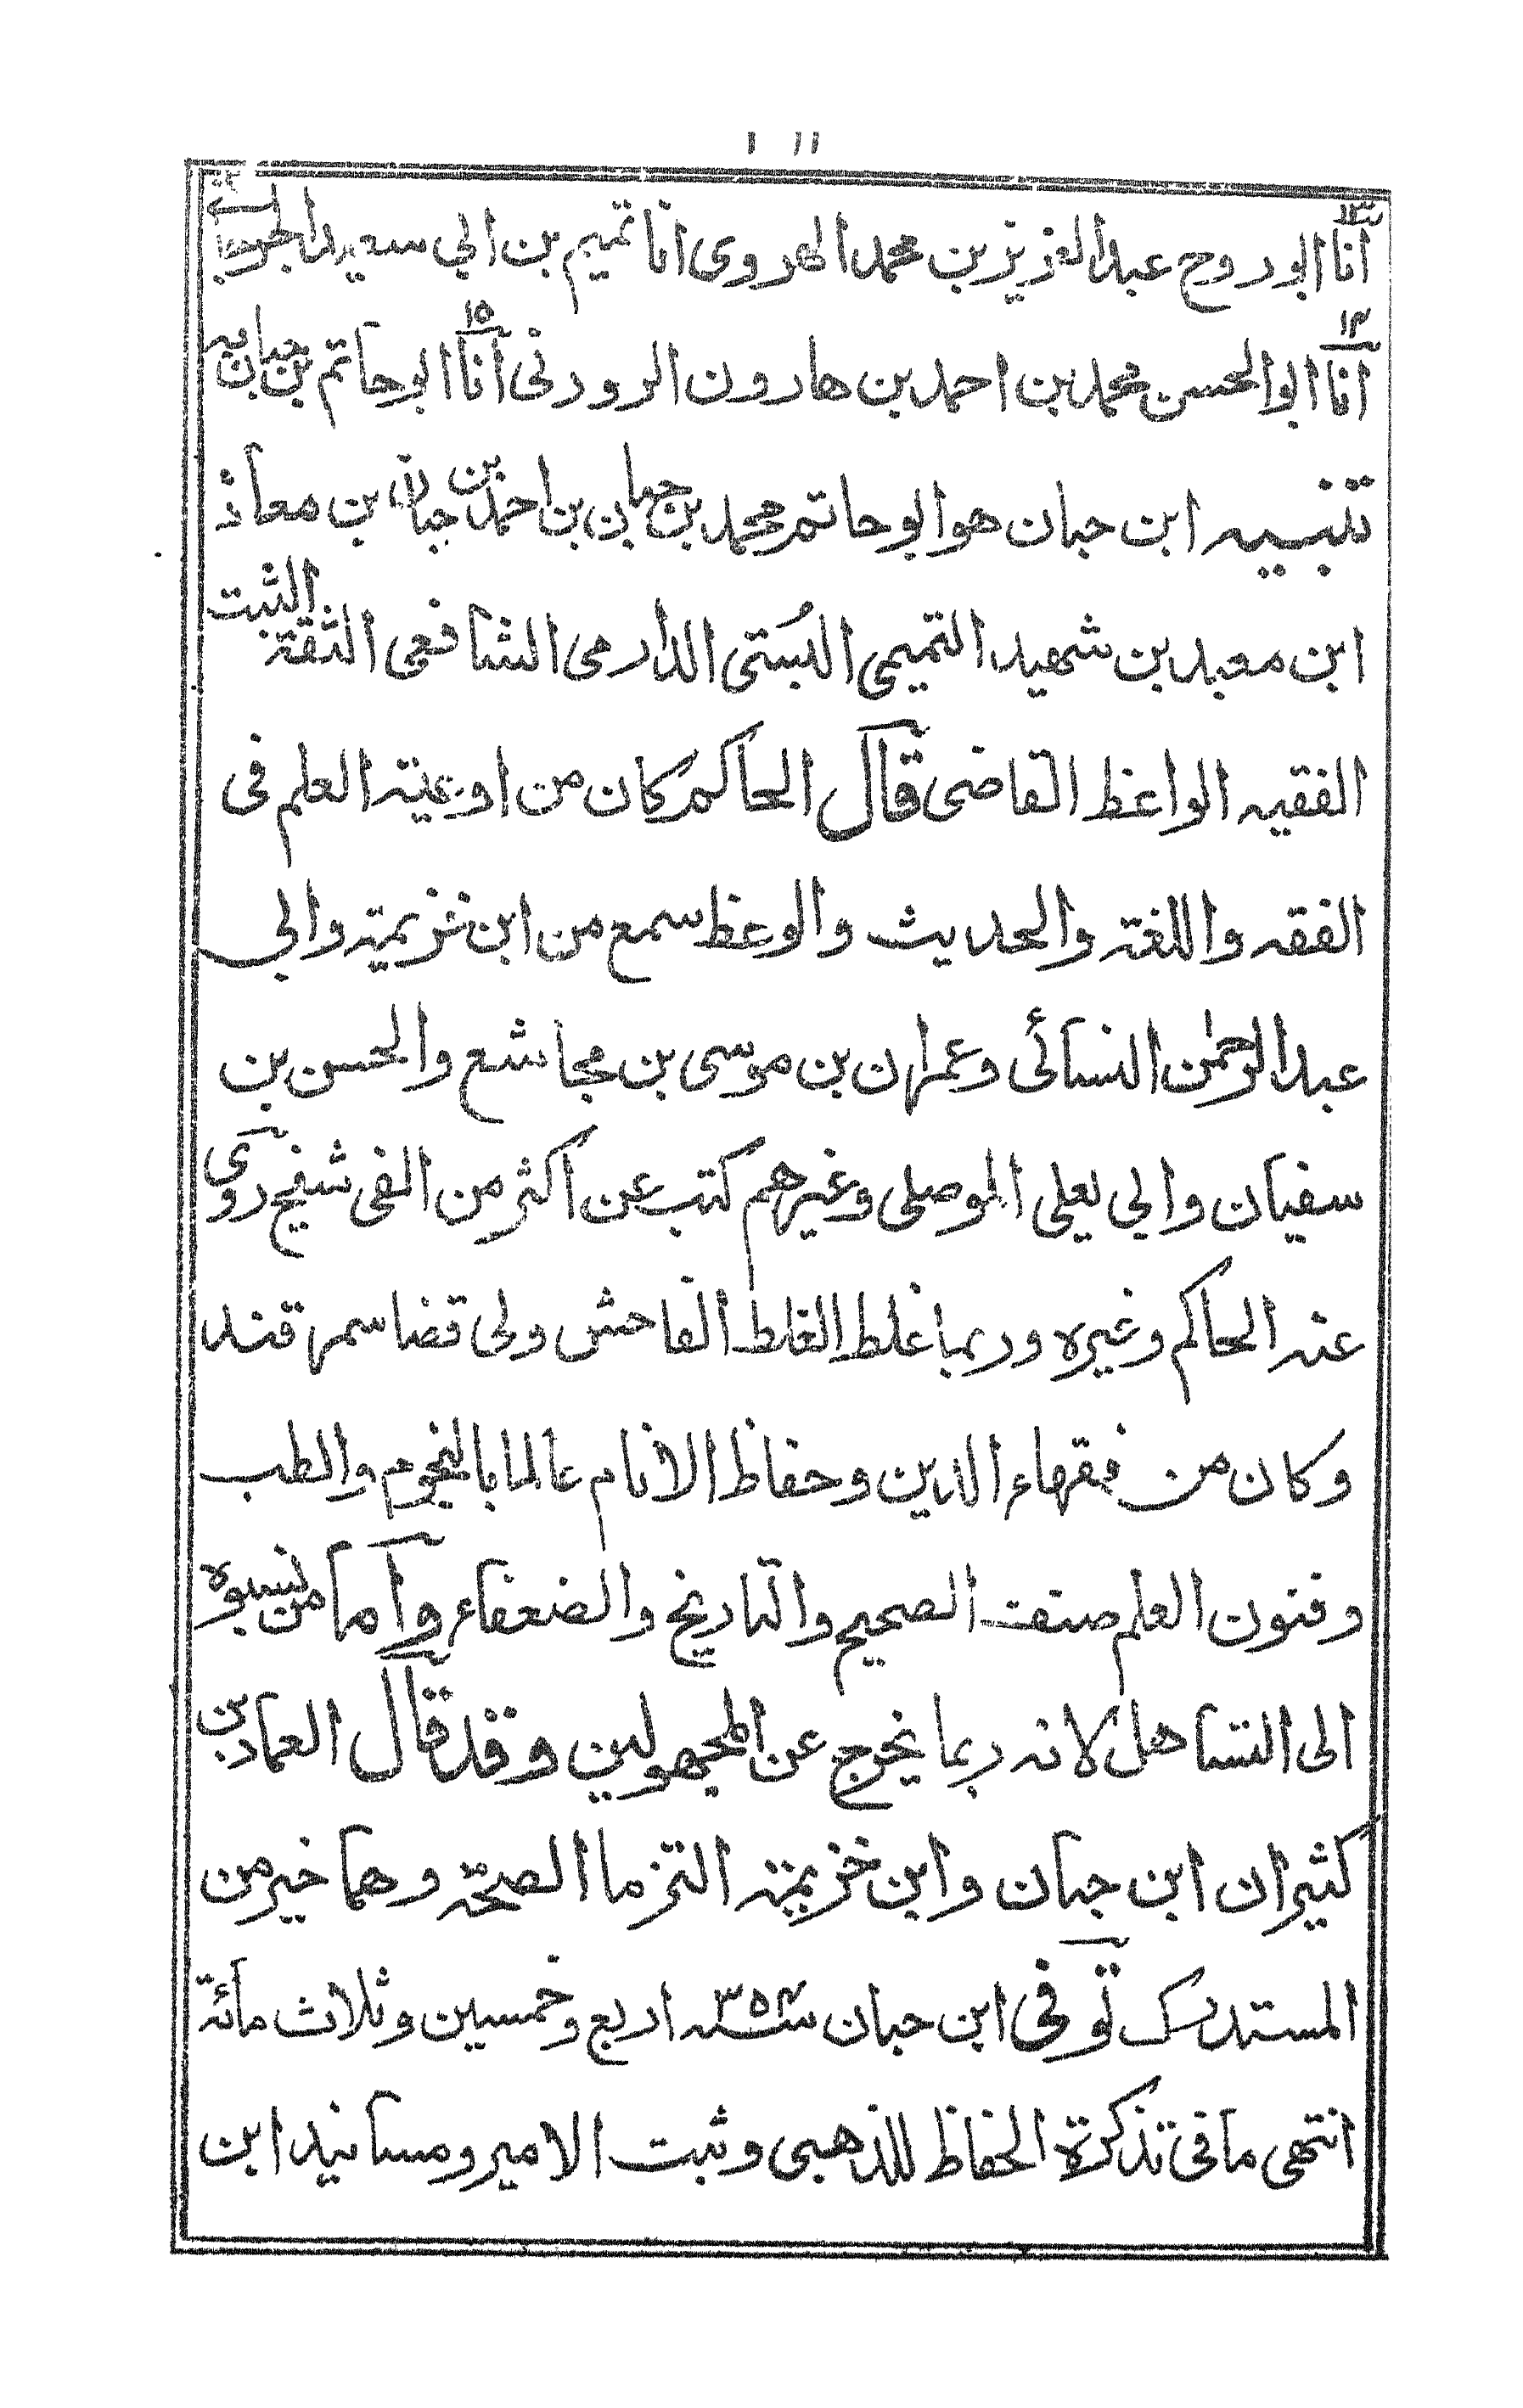 ١١١
١٢ انا ابو روح عبد العزيز بن محمد الهروى انا تميم بن ابي سعيد الجرجاني
١٤ انا ابو الحسن محمد بن احمد بن هارون الرودنى ١٥ انا ابو حاتم بن حبان
تنبيه ابن حبان هو ابو حاتم محمد بن حبان بن احمد بن حبان بن معاذ
ابن معبد بن شهيد التميمي البُستى الدارمى الشافعى الثقة الثبت
الفقيه الواعظ القاضى قال الحاكم كان من اوعية العلم فى
الفقه واللغة والحديث والوعظ سمع من ابن خزيمة وابي
عبد الرحمن النسائى وعمران بن موسى بن مجاشع والحسن بن
سفيان وابي يعلى الموصلى وغيرهم كتب عن اكثر من الفى شيخ روى
عنه الحاكم وغيره وربما غلط الغلط الفاحش ولى قضا سمرقند
وكان من فقهاء الدين وحفاظ الانام عالما بالنجوم والطب
وفنون العلم صنف الصحيح والتاريخ والضعفاء واما من نسبوه
الى التساهل لانه ربما يخرج عن المجهولين وقد قال العماد بن
كثير ان ابن حبان وابن خزيمة التزما الصحة وهما خير من
المستدرك توفى ابن حبان سنة ٣٥٤ اربع وخمسين وثلاث مائة
انتهى ما فى تذكرة الحفاظ للذهبى وثبت الامير ومسانيد ابن